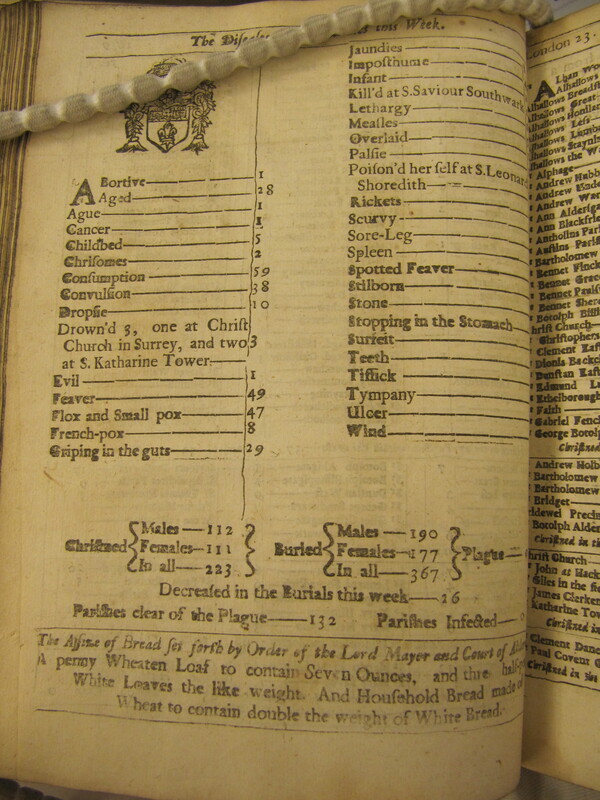 The Diseases this Week.
Abortive 1
Aged 28
Ague 1
Cancer 1
Childbed 5
Chrisomes 2
Consumption 59
Convulsion 38
Dropsie 10
Drown'd 3, one at Christ
Church in Surrey, and two 3
at S. Katharine Tower.
Evil 1
Feaver 49
Flox and Small pox 47
French-pox 8
Griping in the guts 29
Jaundies
Imposthume
Infant
Kill'd at S. Saviour Southwark
Lethargy
Measles
Overlaid
Palsie
Poison'd her self at S. Leonard
Shoredith
Rickets
Scurvy
Sore-Leg
Spleen
Spotted Feaver
Stilborn
Stone
Stopping in the Stomach
Surfeit
Teeth
Tissick
Tympany
Ulcer
Wind
Christned Males 112
Females 111
In all 223
Buried Males 190
Females 177
In all 367
Plague
Decreased in the Burials this week 26
Parishes clear of the Plague 132 Parishes Infected 0
The Assize of Bread set forth by Order of the Lord Mayor and Court of
A penny Wheaten Loaf to contain Seven Ounces, and three half
White Loaves the like weight. And Houshold Bread made of
Wheat to contain double the weight of White Bread.
London 23
Alphage
Andrew Hubb
Andrew Unde
Andrew War
Ann Aldersga
Ann Blackfrie
Bartholomew
Bennet Finck
Bennet Grace
Bennet Paul
Bennet Sher
Botolph Billi
Christ Church
Christophers
Clement East
Dionis Backc
Dunstan East
Edmund L
Ethelborough
Faith
Gabriel Fench
George Botol
Christned
Andrew Holb
Bartholomew
Bartholomew
Bridget
Bridewel Precin
Botolph Alder
Christned in th
Christ Church
John at Hack
Giles in the fie
James Clerken
Katharine Tow
Christned in
Clement Dane
Paul Covent G
Christned in the